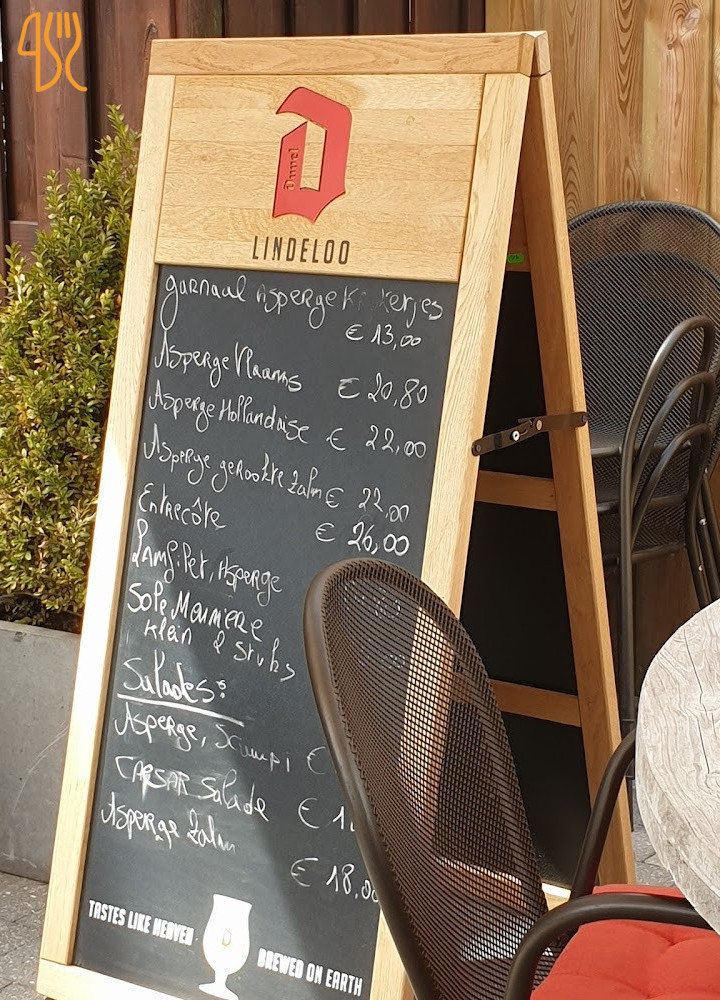 Duvel
LINDELOO
garnaal Asperge Kroketjes
€ 13,00
Asperge Vlaams € 20,80
Asperge Hollandaise € 22,00
Asperge gerookte Zalm € 22,00
Entrecôte € 26,00
Asperge
Sole Meuniere
Klein 2 stuks
Salades:
Asperge, Scampi €
CAESAR Salade € 1
Asperge Zalm
€ 18,00
TASTES LIKE HEAVEN
BREWED ON EARTH